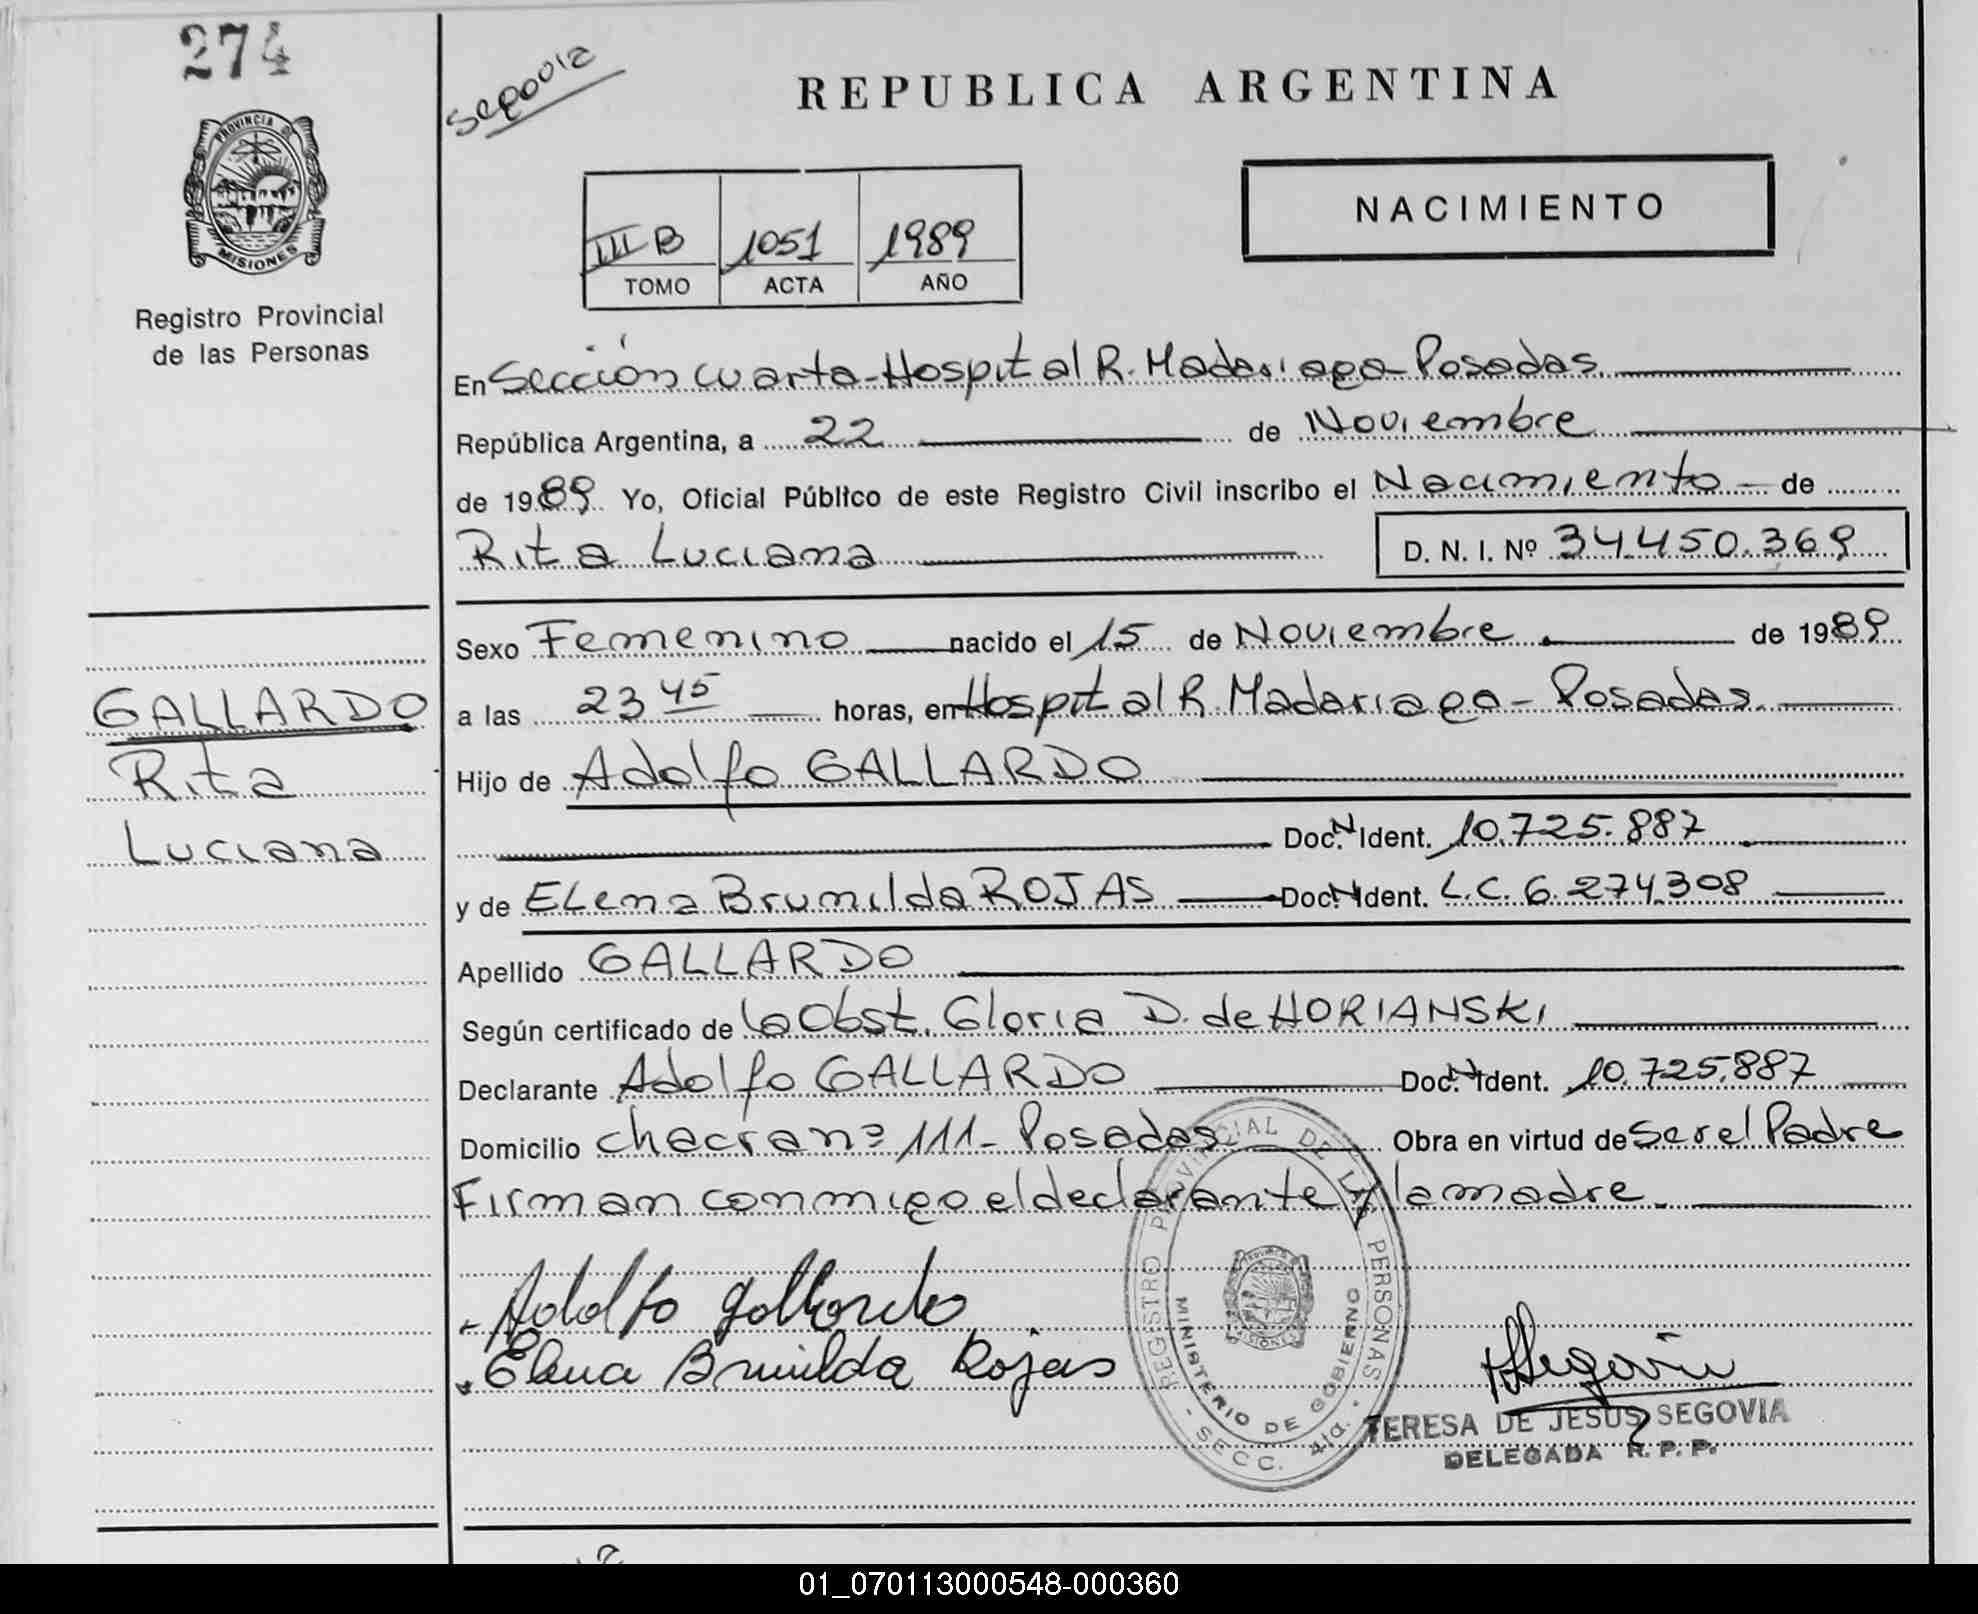 274
Segooia
REPUBLICA ARGENTINA
PROVINCIA DE
MISIONES
NACIMIENTO
III B 1051 1989
TOMO ACTA AÑO
Registro Provincial
de las Personas
En Sección cuarta-Hospital R. Madariaga-Posadas
República Argentina, a 22 de Noviembre
de 1989 Yo, Oficial Público de este Registro Civil inscribo el Nacimiento de
Rita Luciana D. N. I. Nº 34.450.369
Sexo Femenino nacido el 15 de Noviembre de 1989
GALLARDO
a las 23 45 horas, en Hospital R. Madariaga - Posadas
Rita
Hijo de Adolfo GALLARDO
Luciana
Doc. N Ident. 10.725.887
y de Elena Brunilda ROJAS Doc. N Ident. L.C. 6.274.308
Apellido GALLARDO
Según certificado de la Obst. Gloria D. de HORIANSKI
Declarante Adolfo GALLARDO Doc. N Ident. 10.725.887
Domicilio chacra nº 111- Posadas Obra en virtud de Ser el Padre
Firman conmigo el declarante y la madre
Adolfo Gallardo
Elena Brunilda Rojas
REGISTRO PROVINCIAL DE LAS PERSONAS
MINISTERIO DE GOBIERNO
- SECC. 4ta. -
Segovia
TERESA DE JESUS SEGOVIA
DELEGADA R. P. P.
01_070113000548-000360